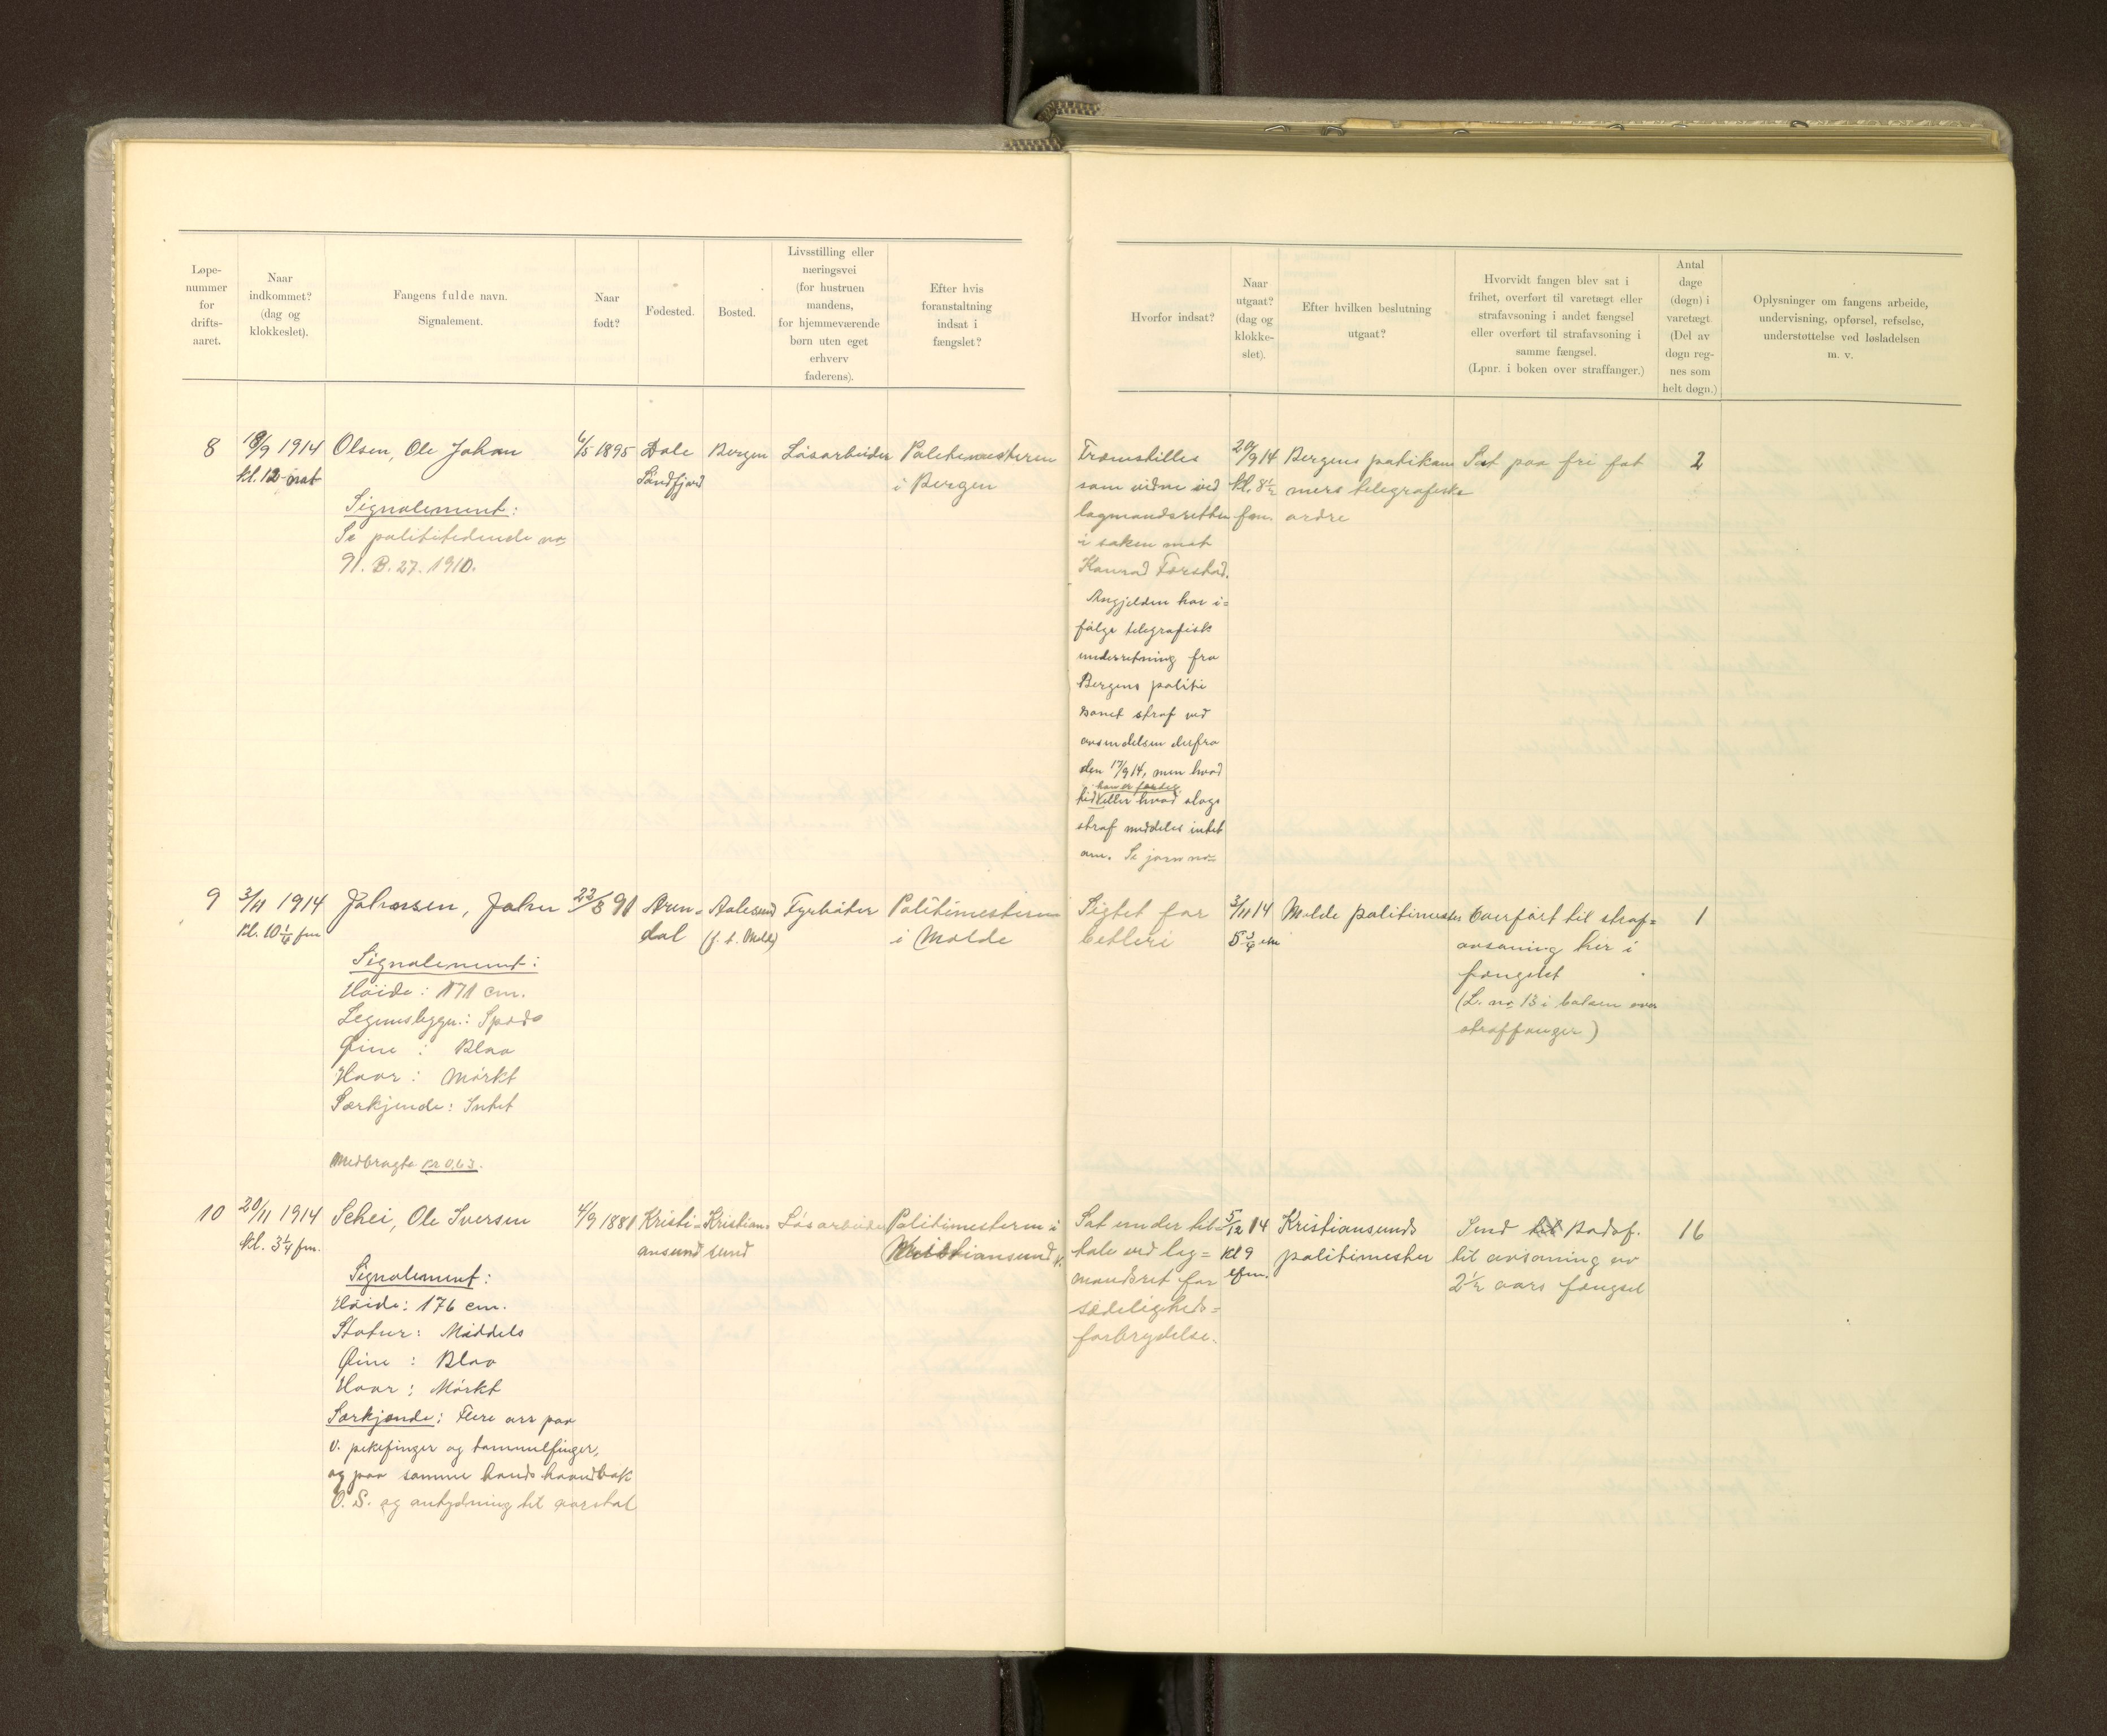 Løpe-
nummer
for
drifts-
aaret.
Naar
indkommet?
(dag og
klokkeslet).
Fangens fulde navn.
Signalement.
Naar
født?
Fødested.
Bosted.
Livsstilling eller
næringsvei
(for hustruen
mandens,
for hjemmeværende
børn uten eget
erhverv
faderens).
Efter hvis
foranstaltning
indsat i
fængslet?
Hvorfor indsat?
Naar
utgaat?
(dag og
klokke-
slet).
Efter hvilken beslutning
utgaat?
Hvorvidt fangen blev sat i
frihet, overført til varetægt eller
strafavsoning i andet fængsel
eller overført til strafavsoning i
samme fængsel.
(Lpnr. i boken over straffanger.)
Antal
dage
(døgn) i
varetægt.
(Del av
døgn reg-
nes som
helt døgn.)
Oplysninger om fangens arbeide,
undervisning, opførsel, refselse,
understøttelse ved løsladelsen
m. v.
8
18/9 1914
kl. 12 nat
Olsen, Ole Johan
Signalement:
Se polititidende no
91. B. 27. 1910.
6/5 1895
Dale
Søndfjord
Bergen
Løsarbeider
Politimesteren
i Bergen
Fremstilles
som vidne ved
lagmandsretten
i saken mot
Konrad Førstad.
Angjelden har i=
følge telegrafisk
underretning fra
Bergens politi
sonet straf ved
avsendelsen derfra
den 17/9 14, men hvad
tid eller hvad slags
straf meddeles intet
om. Se jorn no
20/9 14
kl. 8½
fm.
Bergens politikam
mers telegrafiske
ordre
Sat paa fri fot
2
9
3/11 1914
kl. 10¼ fm
Johansen, Johan
Signalement:
Høide: 171 cm.
Legemsbygn.: Spæd
Øine : Blaa
Haar : Mørkt
Særkjende: Intet
Medbragte kr 0,63.
22/8 91
Aren=
dal
Aalesund
(f. t. Molde)
Fyrbøter
Politimesteren
i Molde
Sigtet for
betleri
3/11 14
5¾ em
Molde politimester
Overført til straf=
avsoning her i
fængslet
(L. no 13 i boken over
straffanger)
1
10
20/11 1914
kl. 3¼ fm.
Schei, Ole Iversen
Signalement:
Høide: 176 cm.
Statur: Middels
Øine : Blaa
Haar : Mørkt
Særkjende: Flere arr paa
v. pekefinger og tommelfinger,
og paa samme haands haandbak
O. S. og antydning til aarstal
4/9 1881
Kristi=
ansund
Kristian=
sund
Løsarbeider
Politimesteren i
Kristiansund
Sat under til=
tale ved lag=
mandsret for
sædeligheds=
forbrydelse.
5/12 14
kl 9
efm.
Kristiansunds
politimester
Send til Bodsf.
til avsoning av
2½ aars fængsel
16